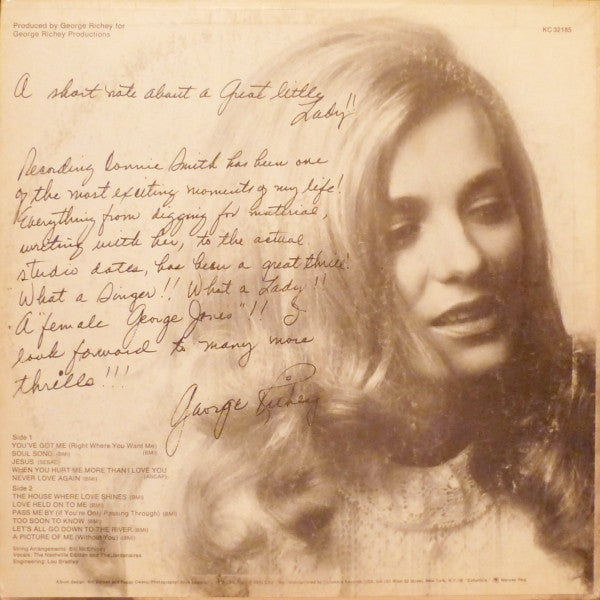 Produced by George Richey for
George Richey Productions
KC 32185
A short note about a Great little
Lady!!
Recording Connie Smith has been one
of the most exciting moments of my life!
Everything from digging for material,
writing with her, to the actual
studio dates, has been a great thrill!
What a Singer!! What a Lady!!
A "female George Jones"!! I
look forward to many more
thrills!!!
George Richey
Side 1
YOU'VE GOT ME (Right Where You Want Me)
SOUL SONG (BMI) (BMI)
JESUS (SESAC)
WHEN YOU HURT ME MORE THAN I LOVE YOU
NEVER LOVE AGAIN (BMI) (ASCAP)
Side 2
THE HOUSE WHERE LOVE SHINES (BMI)
LOVE HELD ON TO ME (BMI)
PASS ME BY (If You're Only Passing Through) (BMI)
TOO SOON TO KNOW (BMI)
LET'S ALL GO DOWN TO THE RIVER (BMI)
A PICTURE OF ME (Without You) (BMI)
String Arrangements: Bill McElhiney
Vocals: The Nashville Edition and The Jordanaires
Engineering: Lou Bradley
Album design: Bill Barnes and Peggy Owens/Photography: